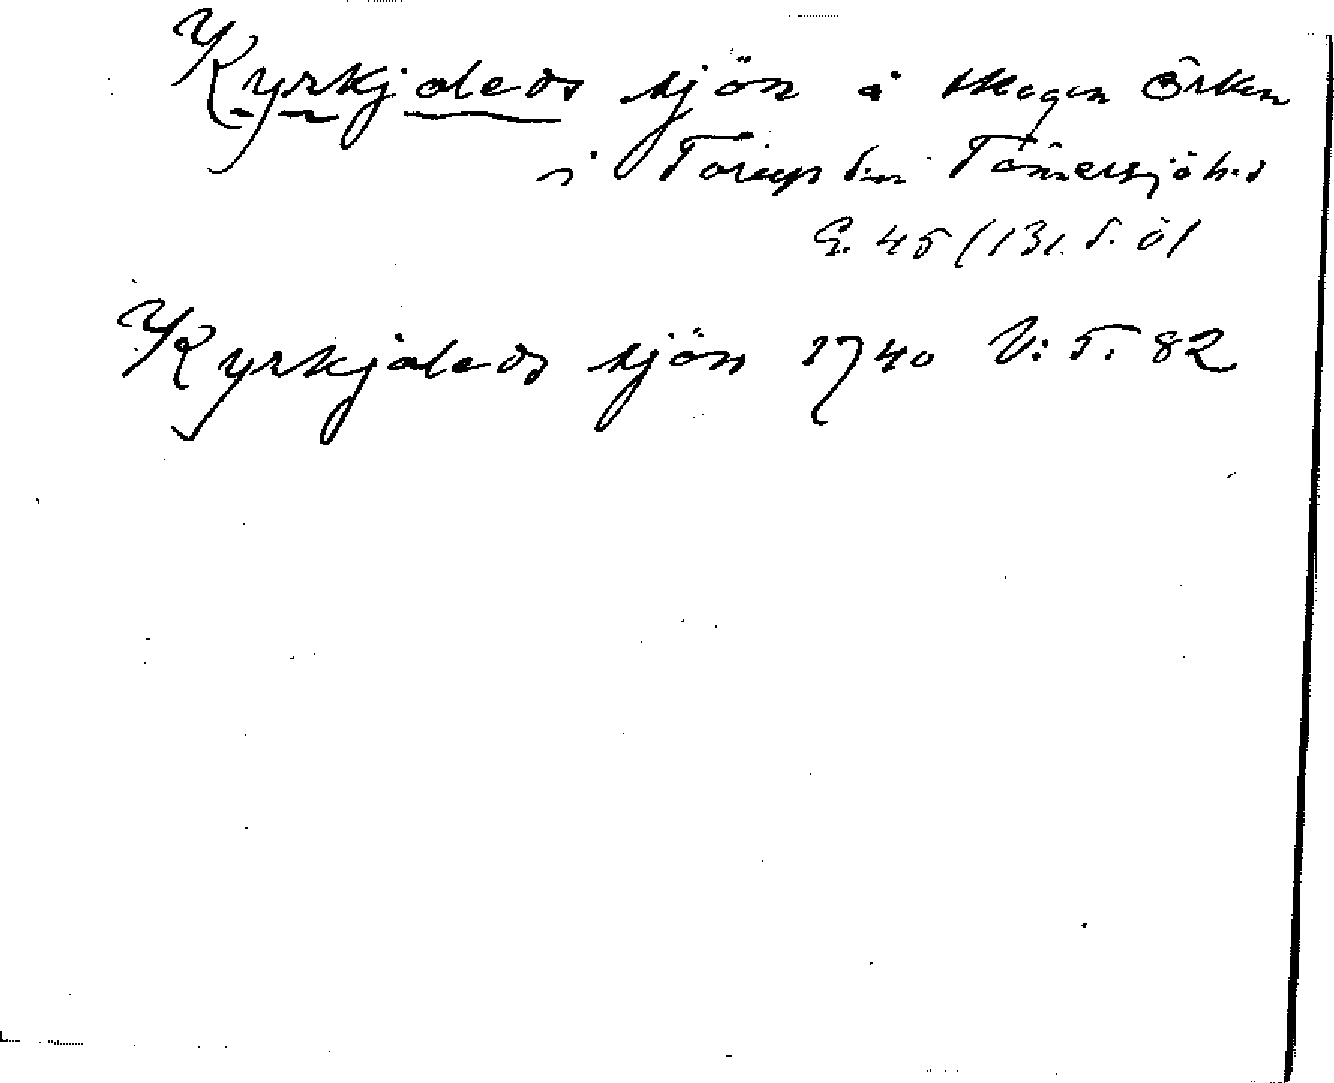 Kyrkjaleds sjön å skogen Örken
i Torup sn Tönnersjö h.d
G. 45 (131. S. ö)
Kyrkjaleds sjön 1740 V: S. 82